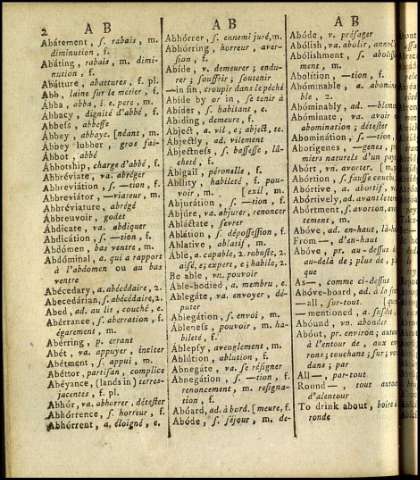 2
A B
Abátement, ſ. rabais, m.
diminution, f.
Abáting, rabais, m. dimi-
nution, f.
Abátture, abattures, f. pl.
Abb, laine ſur le métier, f.
Abba, abba, ſ. e. pere, m.
Abbacy, dignité d'abbé, f.
Abbeſs, abbeſſe
Abbey, abbaye. [néant, m.
Abbey lubber, gros fai-
Abbot, abbé
Abbotſhip, charge d'abbé, f.
Abbréviate, va. abréger
Abbreviátion, ſ. —tion, f.
Abbreviátor, —viateur, m.
Abbréviature, abrégé
Abbreuvoir, godet
Abdicate, va. abdiquer
Abdicátion, ſ. —tion, f.
Abdómen, bas ventre, m.
Abdóminal, a. qui a rapport
à l'abdomen ou au bas
ventre
Abécedary, a. abécédaire, 2.
Abecedárian, ſ. abécédaire, 2.
Abed, ad. au lit, couché, e.
Abérrance, ſ. aberration, f.
égarement, m.
Abérring, p. errant
Abét, va. appuyer, inciter
Abétment, ſ. appui, m.
Abéttor, partiſan, complice
Abéyance, (lands in) terres-
jacentes, f. pl.
Abhór, va. abhorrer, déteſter
Abhórrence, ſ. horreur, f.
Abhórrent, a. éloigné, e.
A B
Abhórrer, ſ. ennemi juré, m.
Abhórring, horreur, aver-
ſion, f.
Abíde, v. demeurer; endu-
rer; ſouffrir; ſoutenir
—in ſin, croupir dans le péché
Abíde by or in, ſe tenir à
Abíder, ſ. habitant, e.
Abíding, demeure, f.
Abject, a. vil, e; abject, te.
Abjectly, ad. vilement
Abjectneſs, ſ. baſſeſſe, lâ-
cheté, f.
Abígail, péronelle, f.
Ability, habileté, f. pou-
voir, m. [exil, m.
Abjurátion, ſ. —tion, f.
Abjúre, va. abjurer, renoncer
Abláctate, ſevrer
Ablátion, dépoſſeſſion, f.
Ablative, ablatif, m.
Able, a. capable, 2. robuſte, 2.
aiſé, e; expert, e; habile, 2.
Be able, vn. pouvoir
Able-bodied, a. membru, e.
Ablegáte, va. envoyer, dé-
puter
Ablegátion, ſ. envoi, m.
Ableneſs, pouvoir, m. ha-
bileté, f.
Áblepſy, aveuglement, m.
Ablútion, ablution, f.
Abnegate, va. ſe réſigner
Abnegátion, ſ. —tion, f.
renoncement, m. réſigna-
tion, f.
Abóard, ad. à bord. [meure, f.
Abóde, ſ. ſéjour, m. de-
A B
Abóde, v. préſager
Abóliſh, va. abolir,
Abóliſhment, ſ.
ment, m.
Abolítion, —tion, f.
Abóminable, a.
ble, 2.
Abóminably, ad.
Abóminate, va. avoir
abomination; déteſter
Abominátion, ſ. —tion
Aborigenes, —genes, p
miers naturels d'un pays
Abórt, vn. avorter. [m.
Abórtion, ſ. fauſſe couche
Abórtive, a. abortif,
Abórtively, ad. avant
Abórtment, ſ. avorton,
tement, m.
Abóve, ad. en-haut,
From —, d'en-haut
Abóve, pr. au-deſſus
au-delà de; plus de,
que
As—, comme ci-deſſus
Abóve-board, ad. à la
— all, ſur-tout.
— mentioned, a.
Abóund, va. abonder
Abóut, pr. environ,
à l'entour de, aux
rons; touchant; ſur;
dans; par
All —, par-tout
Round —, tout
d'alentour
To drink about, boire à
ronde